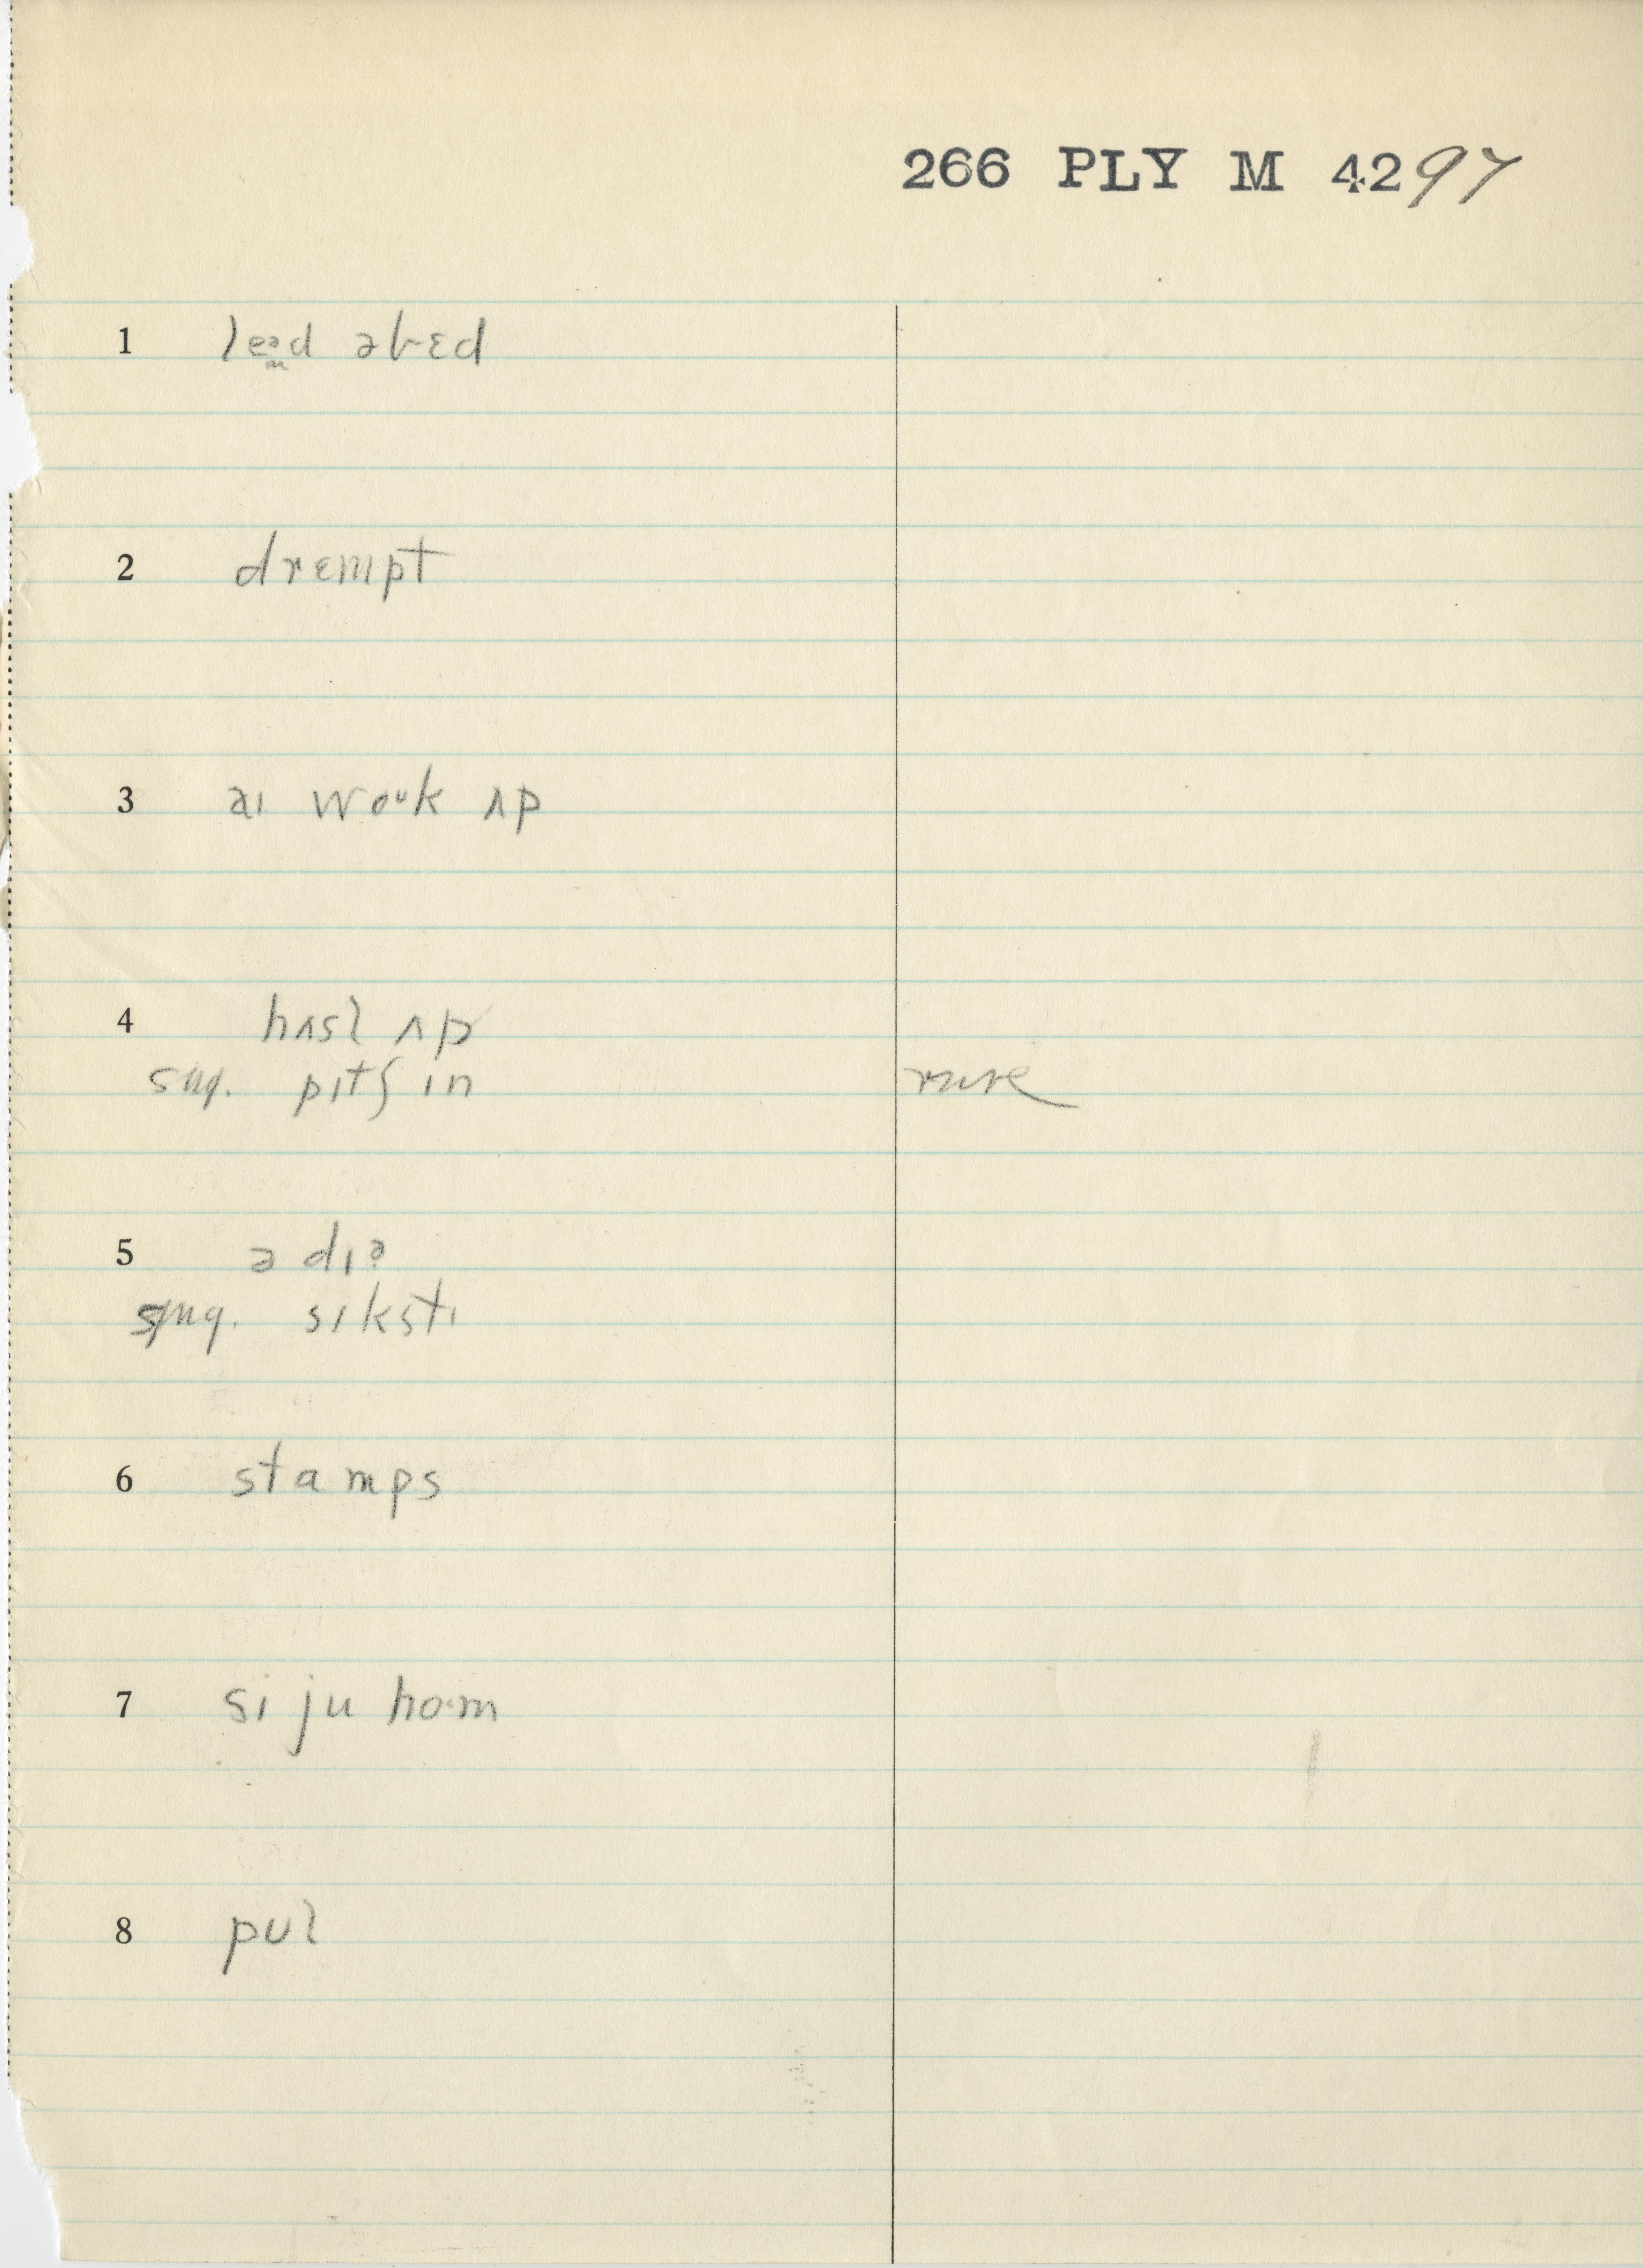 266 PLY M 4297
1 leəd əbɛd
2 drɛmpt
3 aɪ woᴜk ʌp
4 hʌsl ʌp
sug. pɪtʃ ɪn rare
5 ə dɪə
sug. sɪkstɪ
6 stamps
7 si ju ho·m
8 pʊl